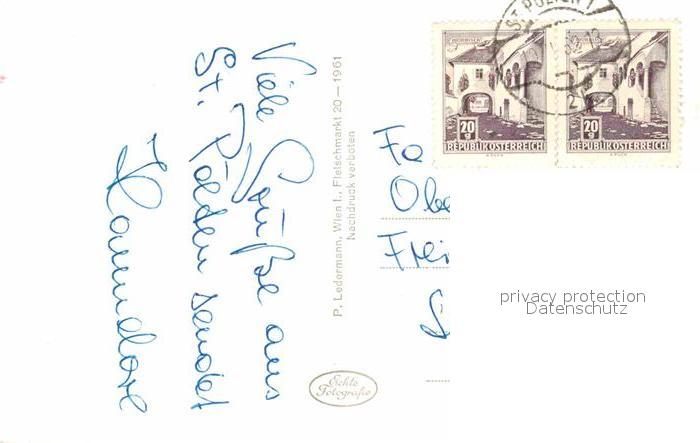 Viele Grüße aus
St. Pölten sendet
Hannelore
P. Ledermann, Wien I., Fleischmarkt 20 — 1961
Nachdruck verboten
Echte
Fotografie
Fa
Obe
Frei
ST. PÖLTEN 1
20
g
REPUBLIK ÖSTERREICH
20
g
REPUBLIK ÖSTERREICH
privacy protection
Datenschutz